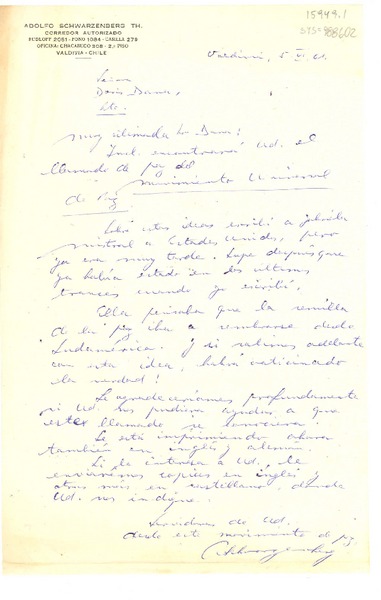 ADOLFO SCHWARZENBERG TH.
CORREDOR AUTORIZADO
RUDLOFF 2051 - FONO 1084 - CASILLA 279
OFICINA: CHACABUCO 308 - 2.º PISO
VALDIVIA - CHILE
15949.1
SYS= 988602
Valdivia, 5 VI 61.
Doris Dana,
Muy estimada Sra. Dana:
Incl. encontrará Ud. el
llamado de paz del
Movimiento Universal
de Paz
estas ideas escribí a Gabriela
Mistral a Estados Unidos, pero
ya era muy tarde. Supe después que
ya había estado en los últimos
trances cuando yo escribí.
Ella pensaba que la semilla
de la paz iba a sembrarse desde
Sudamérica. Y si salimos adelante
con esta idea, habrá vaticinado
la verdad!
Le agradeceríamos profundamente
si Ud. nos pudiera ayudar a que
este llamado se conociera.
Se está imprimiendo ahora
también en inglés y alemán.
Si le interesa a Ud., le
enviaremos copias en inglés y
otras más en castellano donde
Ud. nos indique.
Servidores de Ud.
desde este movimiento de paz.